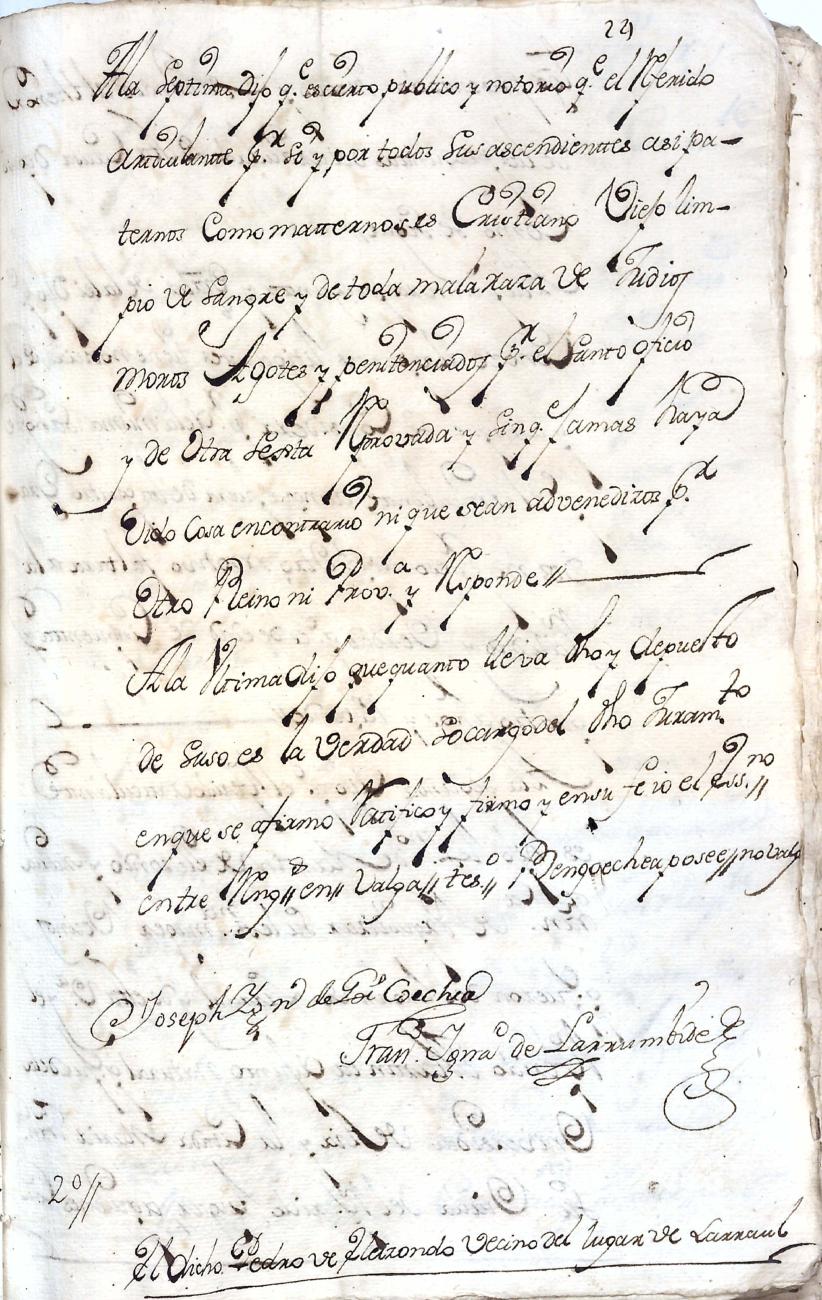 24
Ala Septima dijo q.e es cierto publico y notorio q.e el Referido
Articulante p.r Si y por todos Sus ascendienttes asi pa-
ternos Como matternos es Cristiano Viejo lim-
pio de sangre y de toda mala raza de Judios
moros Agotes y penitenciados p.r el Santo oficio
y de Otra Sexta Reprovada y sin q.e Jamas haya
oido Cosa encontrario ni que sean advenedizos p.r
Otro Reino ni Prov.a y Responde //
Ala Ultima dijo que quanto lleva dho y depuesto
de Suso es la Verdad Socargo del dho Juram.to
enque se afirmo Ratifico y firmo y ensu fe io el Ess.no //
entre Ring.s // en // Valga // tes.o // Bengoechea posee // no valg
Joseph Ygn.o de Goicoechea
Fran.co Ygna.o de Larrumbide
2.o //
El dicho Pedro de Elizondo Vecino del lugar de Larraul